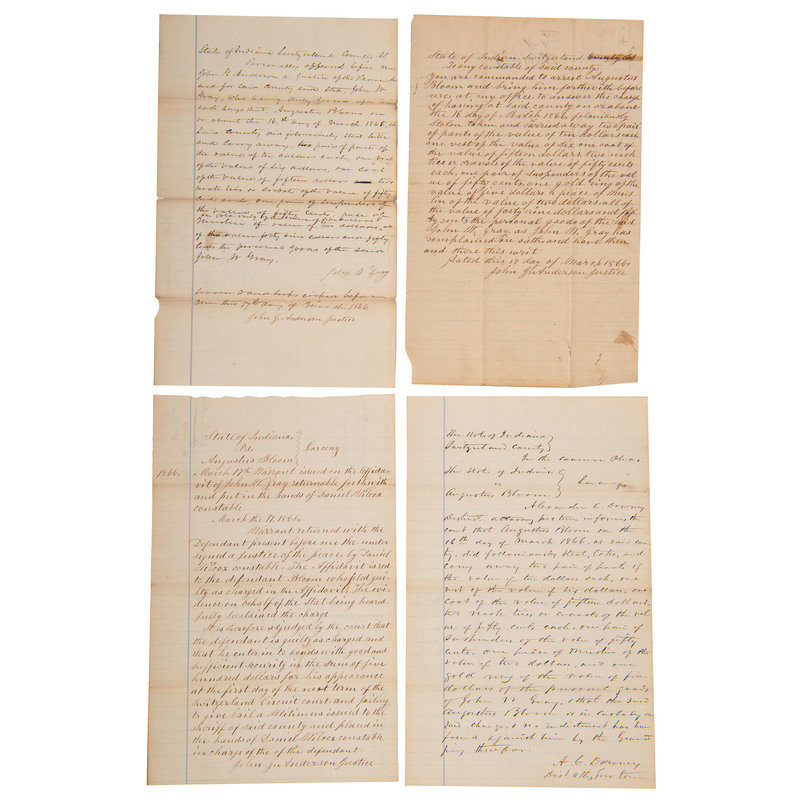 State of Indiana Switzerland County SS
Personally appeared before me
John G Anderson a Justice of the Peace
and for Said County and State John W
Gray. Who being duly Sworn upon his
oath Says that Augustus Bloom on
or about the 16th day of March 1866, at
Said County, did feloniously Steal take
and Carry away, two pair of pants of
the value of ten dollars each, one vest
of the value of Six dollars, one Coat
of the value of fifteen dollars two
neck ties or cravats of the value of fifty
cents each one pair of suspenders of
the value of fifty cents piece of
Muslin of value of two dollars, all
of the value forty nine dollars and fifty
Cents the personal goods of the said
John W Gray.
John W Gray
Sworn to and Subscribed before
me this 17th day of March 1866
John Gn Anderson Justice
State of Indian, Switzerland County SS
To any constable of said county
you are commanded to arrest Augustus
Bloom and bring him forthwith before
me, at my office to answer the charge
of having at said county on or about
the 16 day of March 1866 feloniously
Stolen taken and carried away two pair
of pants of the value of ten dollars each
one vest of the value of six one coat of
the value of fifteen dollars two neck
ties or cravats of the value of fifty cents
each, one pair of suspenders of the val
ue of fifty cents one gold ring of the
value of five dollars & piece of mus
lin of the value of two dollars all of
the value of forty nine dollars and fif
ty cents the personal goods of the said
John W. Gray, as John W. Gray has
complained on oath, and have then
and there this writ
Dated this 17 day of March 1866
John Gn Anderson Justice
State of Indiana
vs Larceny
Augustus Bloom
1866 March 17th Warrant issued on the affida
vit of John W Gray returnable forthwith
and put in the hands of Daniel Wilcox
constable
March the 17. 1866
Warrant returned with the
Defendant present before me the under
signed a Justice of the peace by Daniel
Wilcox constable. The Affidavit is red
to the defendant Bloom who pled guil
ty as charged in the Affidavit, The evi
dence on behalf of the Stat being heard
fully sustained the charge
It is therefore adjudged by the court that
the defendant is guilty as charged and
that he enter in to bonds with good and
sufficient security in the sum of five
hundred dollars for his appearance
at the first day of the next term of the
Switzerland Circuit court and failing
to give bail a Mitimus issued to the
sheriff of said county and placed in
the hands of Daniel Wilcox constable
in charge of the of the defendant
John Gn Anderson Justice
The State of Indiana
Switzerland County
In the Common Pleas
The State of Indiana
vs Larceny
Augustus Bloom
Alexander C. Downey
District attorney informs the
court that Augustus Bloom on the
16th day of March 1866, at said coun
ty, did feloniously steal, take, and
carry away two pair of pants of
the value of ten dollars each, one
vest of the value of six dollars, one
coat of the value of fifteen dollars,
two neck ties or cravats of the val
ue of fifty cents each, one pair of
Suspenders of the value of fifty
cents, one piece of Muslin of the
value of two dollars, and one
gold ring of the value of five
dollars of the personal goods
of John W Gray, & that the said
Augustus Bloom is in custody on
said charge, & no indictment has been
found against him by the Grand
jury therefor.
A. C. Downey